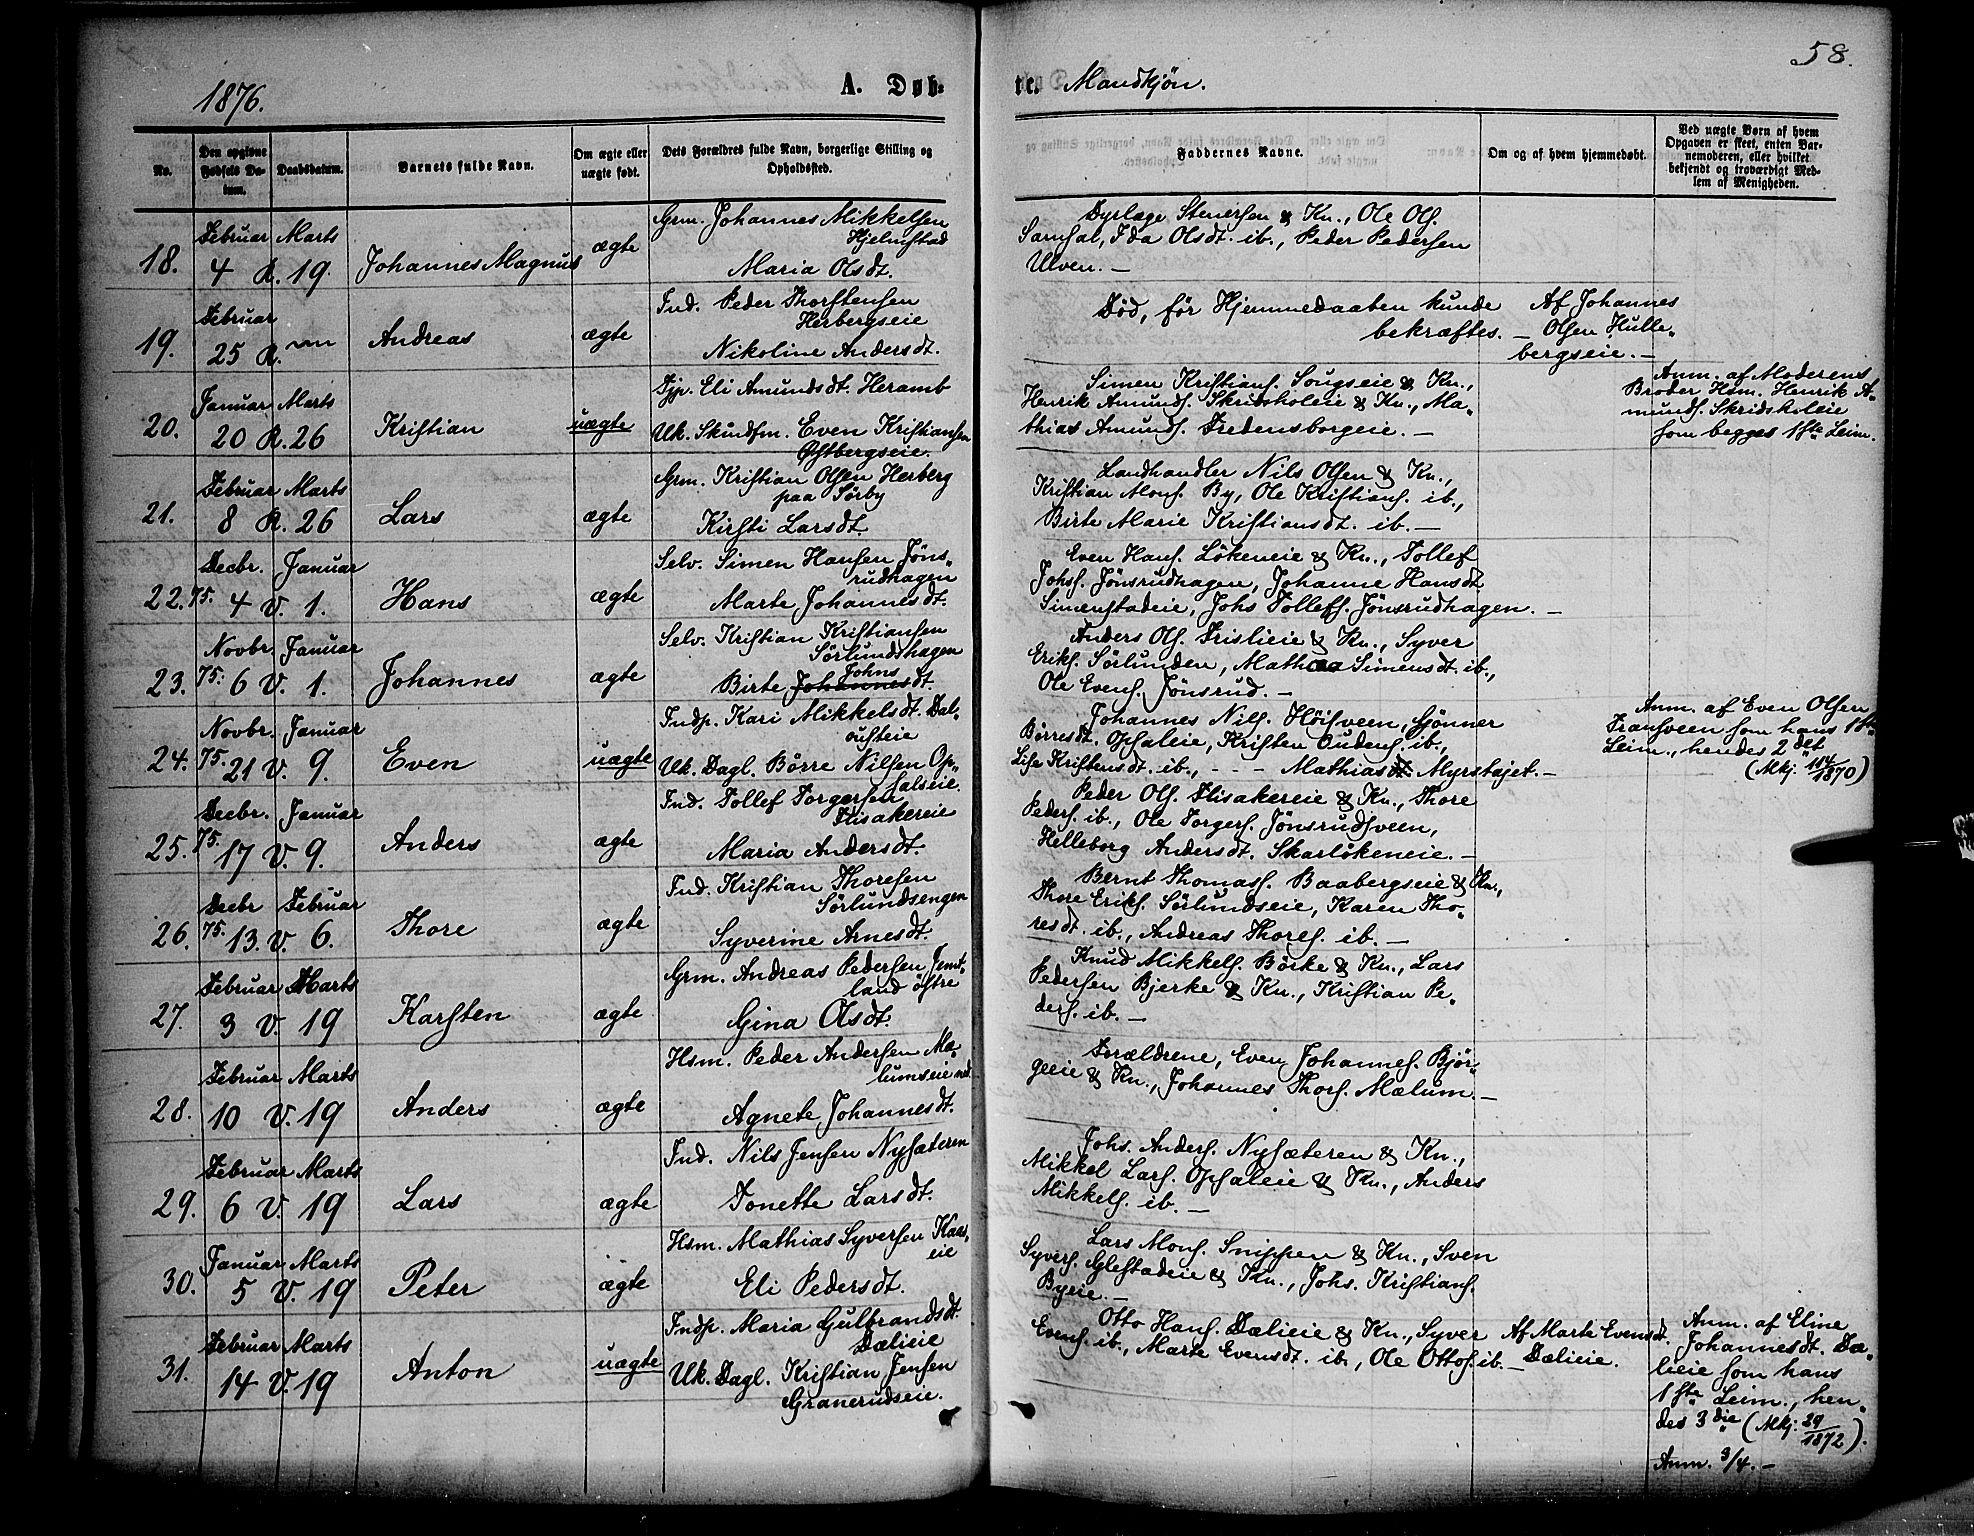 58.
1876.
A. Døb-
te. Mandkjön.
No.
Den opgivne Fødsels Datum.
Daabsdatum.
Barnets fulde Navn.
Om ægte eller uægte født.
Dets Forældres fulde Navn, borgerlige Stilling og Opholdssted.
Faddernes Navne.
Om og af hvem hjemmedøbt.
Ved uægte Børn af hvem Opgaven er skeet, enten Barnemoderen, eller hvilket bekjendt og troværdigt Medlem af Menigheden.
18.
Februar 4 R.
Marts 19.
Johannes Magnus
ægte
Grm. Johannes Mikkelsen
Hjelmstad
Maria Olsdt.
Dyrlæge Stenersen & Kn., Ole Ols.
Samsal, Ida Olsdt. ib., Peder Pedersen
Ulven. —
19.
Februar 25 R.
Andreas
ægte
Ind. Peder Thorstensen
Herbergseie
Nikoline Andersdt.
Död, för Hjemmedaaben kunde
bekræftes. —
Af Johannes
Olsen Hulle-
bergseie. —
20.
Januar 20 R.
Marts 26
Kristian
uægte
Tjp. Eli Amundsdt. Heramb
Uk. Skindfm. Even Kristiansen
Østbergseie.
Simen Kristians. Sougseie & Kn.,
Henrik Amunds. Skridsholeie & Kn., Ma-
thias Amunds. Fredensborgeie. —
Anm. af Moderens
Broder Hsm. Henrik A-
munds. Skridsholeie
som begges 1ste Leierm.
21.
Februar 8 R.
Marts 26
Lars
ægte
Grm. Kristian Olsen Herberg
paa Sörby
Kirsti Larsdt.
Landhandler Nils Olsen & Kn.,
Kristian Mons. By, Ole Kristians. ib.,
Birte Marie Kristiansdt. ib. —
22.
Decbr. 75. 4 V.
Januar 1.
Hans
ægte
Selv. Simen Hansen Jöns-
rudhagen
Marte Johannesdt.
Even Hans. Lökeneie & Kn., Tollef
Johs. Jönsrudhagen, Johanne Hansdt.
Simenstadeie, Johs Tollefs. Jönsrudhagen. —
23.
Novbr. 75. 6 V.
Januar 1.
Johannes
ægte
Selv. Kristian Kristiansen
Sörlundshagen
Johns
Birte Johannesdt.
Anders Ols. Frislieie & Kn., Syver
Eriks. Sörlunden, Mathea Simensdt. ib.,
Ole Evens. Jönsrud. —
24.
Novbr. 75. 21 V.
Januar 9.
Even
uægte
Indp. Kari Mikkelsdt. Dal-
ousteie
Uk. Dagl. Börre Nilsen Op-
salseie.
Johannes Nils. Höisveen, Gjönner
Börresdt. Opsaleie, Kristen Oudens. ib.,
Lise Kristensdt. ib., - - - Mathiasdt. Myrstajet. —
Anm. af Even Olsen
Transveen som hans 1ste
Leierm., hendes 2det
(Mkj. 114/1870)
25.
Decbr. 75. 17 V.
Januar 9.
Anders
ægte
Ind. Tollef Torgersen
Flisakereie
Maria Andersdt.
Peder Ols. Flisakereie & Kn., Thore
Peders. ib., Ole Torgers. Jönsrudsveen,
Helleborg Andersdt. Skarlökeneie. —
26.
Decbr 75. 13. V.
Februar 6.
Thore
ægte
Ind. Kristian Thoresen
Sörlundsengen
Syverine Arnesdt.
Bernt Thomass. Baabergseie & Kn.,
Thore Eriks. Sörlundseie, Karen Tho-
resdt. ib., Andreas Thores. ib. —
27.
Februar 3 V.
Marts 19
Karsten
ægte
Grm. Andreas Pedersen Jemt-
land östre
Gina Olsdt.
Knud Mikkels. Börke & Kn., Lars
Pedersen Bjerke & Kn., Kristian Pe-
ders. ib. —
28.
Februar 10 V.
Marts 19
Anders
ægte
Hsm. Peder Andersen Mæ-
lumseie ned.
Agnete Johannesdt.
Forældrene, Even Johannes. Björ-
geeie & Kn., Johannes Thors. Mælum. —
29.
Februar 6 V.
Marts 19
Lars
ægte
Ind. Nils Jensen Nysæteren
Tonette Larsdt.
Johs. Anders. Nysæteren & Kn.,
Mikkel Lars. Opsaleie & Kn., Anders
Mikkels. ib. —
30.
Januar 5 V.
Marts 19
Peter
ægte
Hsm. Mathias Syversen Kaas-
eie
Eli Pedersdt.
Lars Mons. Snippen & Kn., Sven
Syvers. Glestadeie & Kn., Johs. Kristians.
Byeie. —
31.
Februar 14 V.
Marts 19
Anton
uægte
Indp. Maria Gulbrandsdt.
Dælieie
Uk. Dagl. Kristian Jensen
Granerudseie.
Otto Hans. Dælieie & Kn., Syver
Evens. ib., Marte Evensdt. ib., Ole Ottos. ib. —
Af Marte Evensdt.
Dælieie.
Anm. af Eline
Johannesdt. Dæ-
lieie som hans
1ste Leierm., hen-
des 3die (Mkj. 29/1872).
Anm. 3/4. —